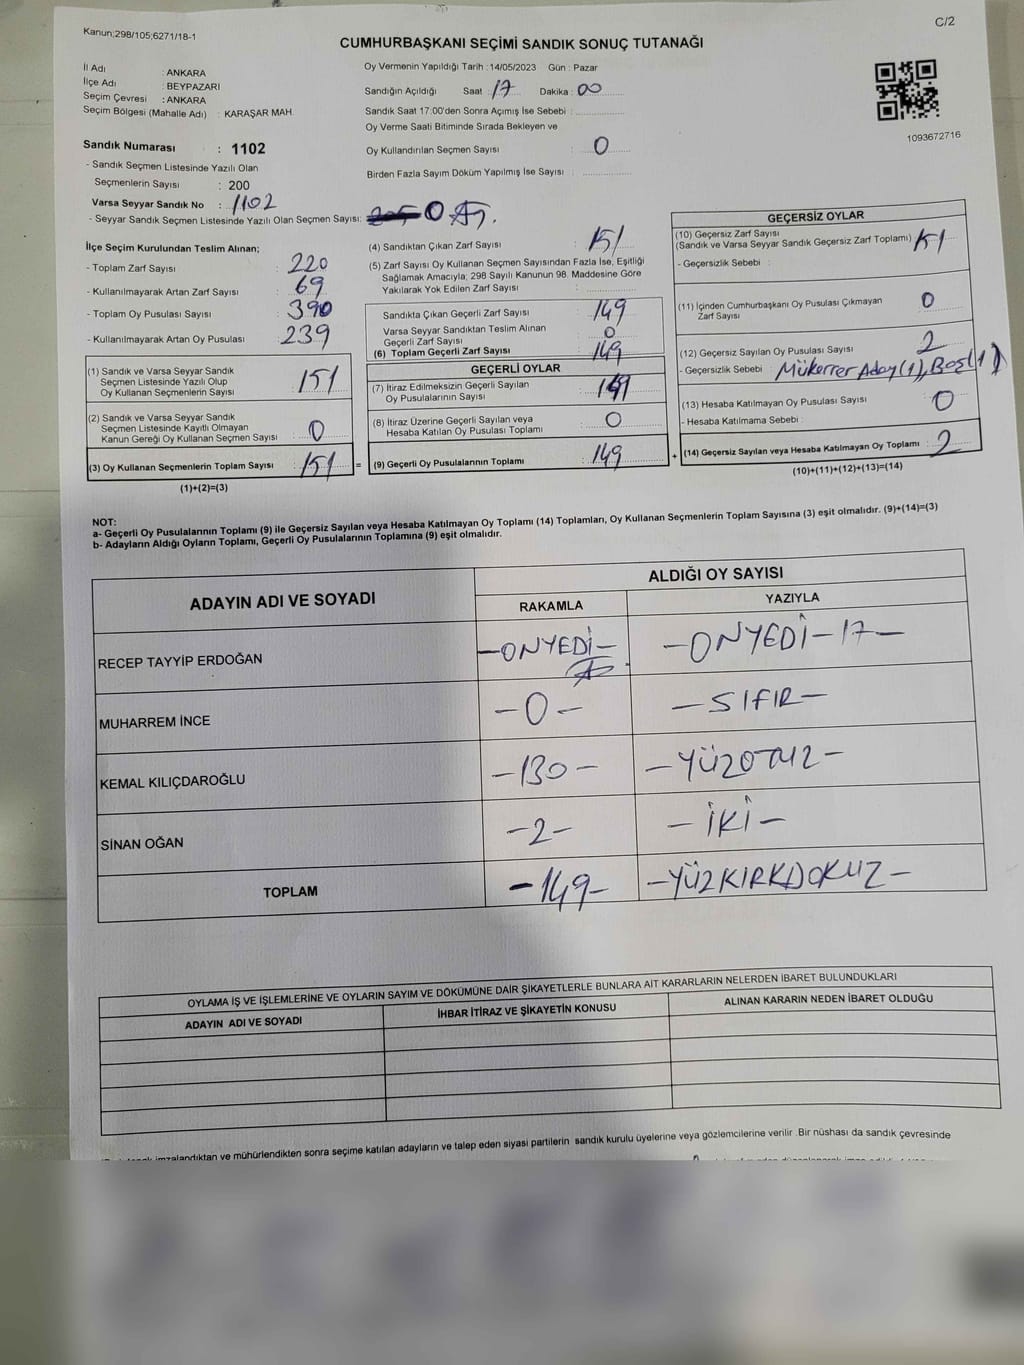 Kanun;298/105;6271/18-1
C/2
CUMHURBAŞKANI SEÇİMİ SANDIK SONUÇ TUTANAĞI
İl Adı : ANKARA
İlçe Adı : BEYPAZARI
Seçim Çevresi : ANKARA
Seçim Bölgesi (Mahalle Adı) : KARAŞAR MAH.
Oy Vermenin Yapıldığı Tarih : 14/05/2023 Gün : Pazar
Sandığın Açıldığı Saat : 17 Dakika : 00
Sandık Saat 17:00'den Sonra Açımış İse Sebebi :
Oy Verme Saati Bitiminde Sırada Bekleyen ve
Oy Kullandırılan Seçmen Sayısı : 0
Birden Fazla Sayım Döküm Yapılmış İse Sayısı :
1093672716
Sandık Numarası : 1102
- Sandık Seçmen Listesinde Yazılı Olan
Seçmenlerin Sayısı : 200
Varsa Seyyar Sandık No : 1102
- Seyyar Sandık Seçmen Listesinde Yazılı Olan Seçmen Sayısı: 0
İlçe Seçim Kurulundan Teslim Alınan;
- Toplam Zarf Sayısı : 220
- Kullanılmayarak Artan Zarf Sayısı : 69
- Toplam Oy Pusulası Sayısı : 390
- Kullanılmayarak Artan Oy Pusulası : 239
(1) Sandık ve Varsa Seyyar Sandık
Seçmen Listesinde Yazılı Olup
Oy Kullanan Seçmenlerin Sayısı : 151
(2) Sandık ve Varsa Seyyar Sandık
Seçmen Listesinde Kayıtlı Olmayan
Kanun Gereği Oy Kullanan Seçmen Sayısı : 0
(3) Oy Kullanan Seçmenlerin Toplam Sayısı : 151 =
(1)+(2)=(3)
(4) Sandıktan Çıkan Zarf Sayısı : 151
(5) Zarf Sayısı Oy Kullanan Seçmen Sayısından Fazla İse, Eşitliği
Sağlamak Amacıyla; 298 Sayılı Kanunun 98. Maddesine Göre
Yakılarak Yok Edilen Zarf Sayısı :
Sandıkta Çıkan Geçerli Zarf Sayısı : 149
Varsa Seyyar Sandıktan Teslim Alınan
Geçerli Zarf Sayısı : 0
(6) Toplam Geçerli Zarf Sayısı : 149
GEÇERLİ OYLAR
(7) İtiraz Edilmeksizin Geçerli Sayılan
Oy Pusulalarının Sayısı : 149
(8) İtiraz Üzerine Geçerli Sayılan veya
Hesaba Katılan Oy Pusulası Toplamı : 0
(9) Geçerli Oy Pusulalarının Toplamı : 149 +
GEÇERSİZ OYLAR
(10) Geçersiz Zarf Sayısı
(Sandık ve Varsa Seyyar Sandık Geçersiz Zarf Toplamı) : 151
- Geçersizlik Sebebi :
(11) İçinden Cumhurbaşkanı Oy Pusulası Çıkmayan
Zarf Sayısı : 0
(12) Geçersiz Sayılan Oy Pusulası Sayısı : 2
- Geçersizlik Sebebi : Mükerrer Aday (1), Boş (1)
(13) Hesaba Katılmayan Oy Pusulası Sayısı : 0
- Hesaba Katılmama Sebebi :
(14) Geçersiz Sayılan veya Hesaba Katılmayan Oy Toplamı : 2
(10)+(11)+(12)+(13)=(14)
NOT:
a- Geçerli Oy Pusulalarının Toplamı (9) ile Geçersiz Sayılan veya Hesaba Katılmayan Oy Toplamı (14) Toplamları, Oy Kullanan Seçmenlerin Toplam Sayısına (3) eşit olmalıdır. (9)+(14)=(3)
b- Adayların Aldığı Oyların Toplamı, Geçerli Oy Pusulalarının Toplamına (9) eşit olmalıdır.
ADAYIN ADI VE SOYADI
ALDIĞI OY SAYISI
RAKAMLA YAZIYLA
RECEP TAYYİP ERDOĞAN -ONYEDİ- -ONYEDİ-17-
MUHARREM İNCE -0- -SIFIR-
KEMAL KILIÇDAROĞLU -130- -YÜZOTUZ-
SİNAN OĞAN -2- -İKİ-
TOPLAM -149- -YÜZKIRKDOKUZ-
OYLAMA İŞ VE İŞLEMLERİNE VE OYLARIN SAYIM VE DÖKÜMÜNE DAİR ŞİKAYETLERLE BUNLARA AİT KARARLARIN NELERDEN İBARET BULUNDUKLARI
ADAYIN ADI VE SOYADI
İHBAR İTİRAZ VE ŞİKAYETİN KONUSU
ALINAN KARARIN NEDEN İBARET OLDUĞU
imzalandıktan ve mühürlendikten sonra seçime katılan adayların ve talep eden siyasi partilerin sandık kurulu üyelerine veya gözlemcilerine verilir .Bir nüshası da sandık çevresinde